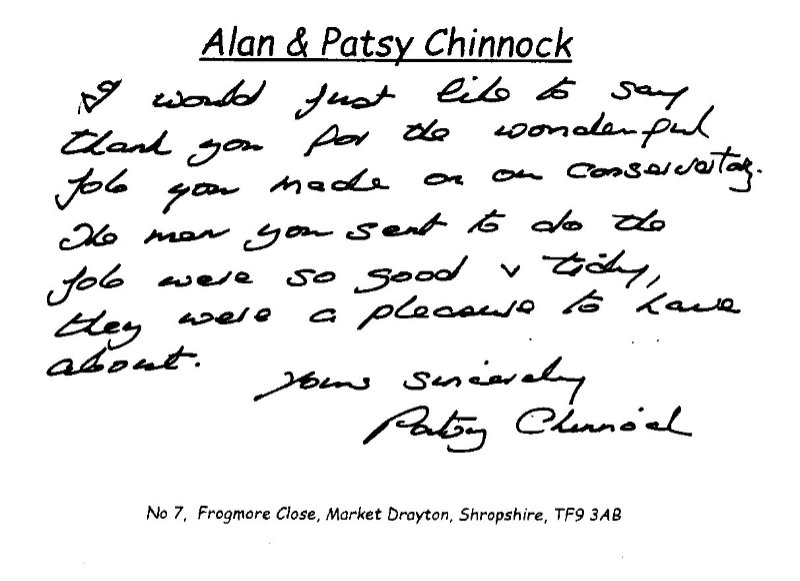 Alan & Patsy Chinnock
I would just like to say
thank you for the wonderful
job you made on our conservertory.
The men you sent to do the
job were so good & tidy,
they were a pleasure to have
about.
Yours sincerely
Patsy Chinnock
No 7, Frogmore Close, Market Drayton, Shropshire, TF9 3AB